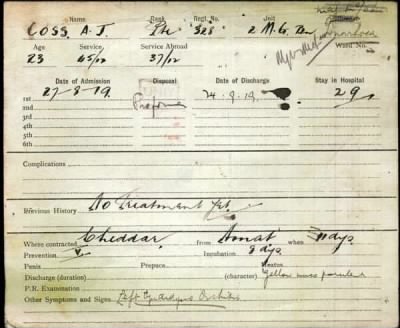 Name Rank Regl. No. Unit
COSS A. J. Pte 328 2 M. G. Bn
Gonorrhoea
Age Service Service Abroad Ward No.
23 45/12 37/12
Date of Admission Disposal Date of Discharge Stay in Hospital
1st 27-8-19. 24.9.19. 29
2nd
3rd
4th
5th
6th
Complications
Previous History No Treatment yet.
Where contracted Cheddar from Amat when 11 dys
Prevention Incubation 8 dys
Penis Prepuce Meatus
Discharge (duration) (character) Yellow muco purulent
P.R. Examination
Other Symptoms and Signs Left Epididymo Orchitis